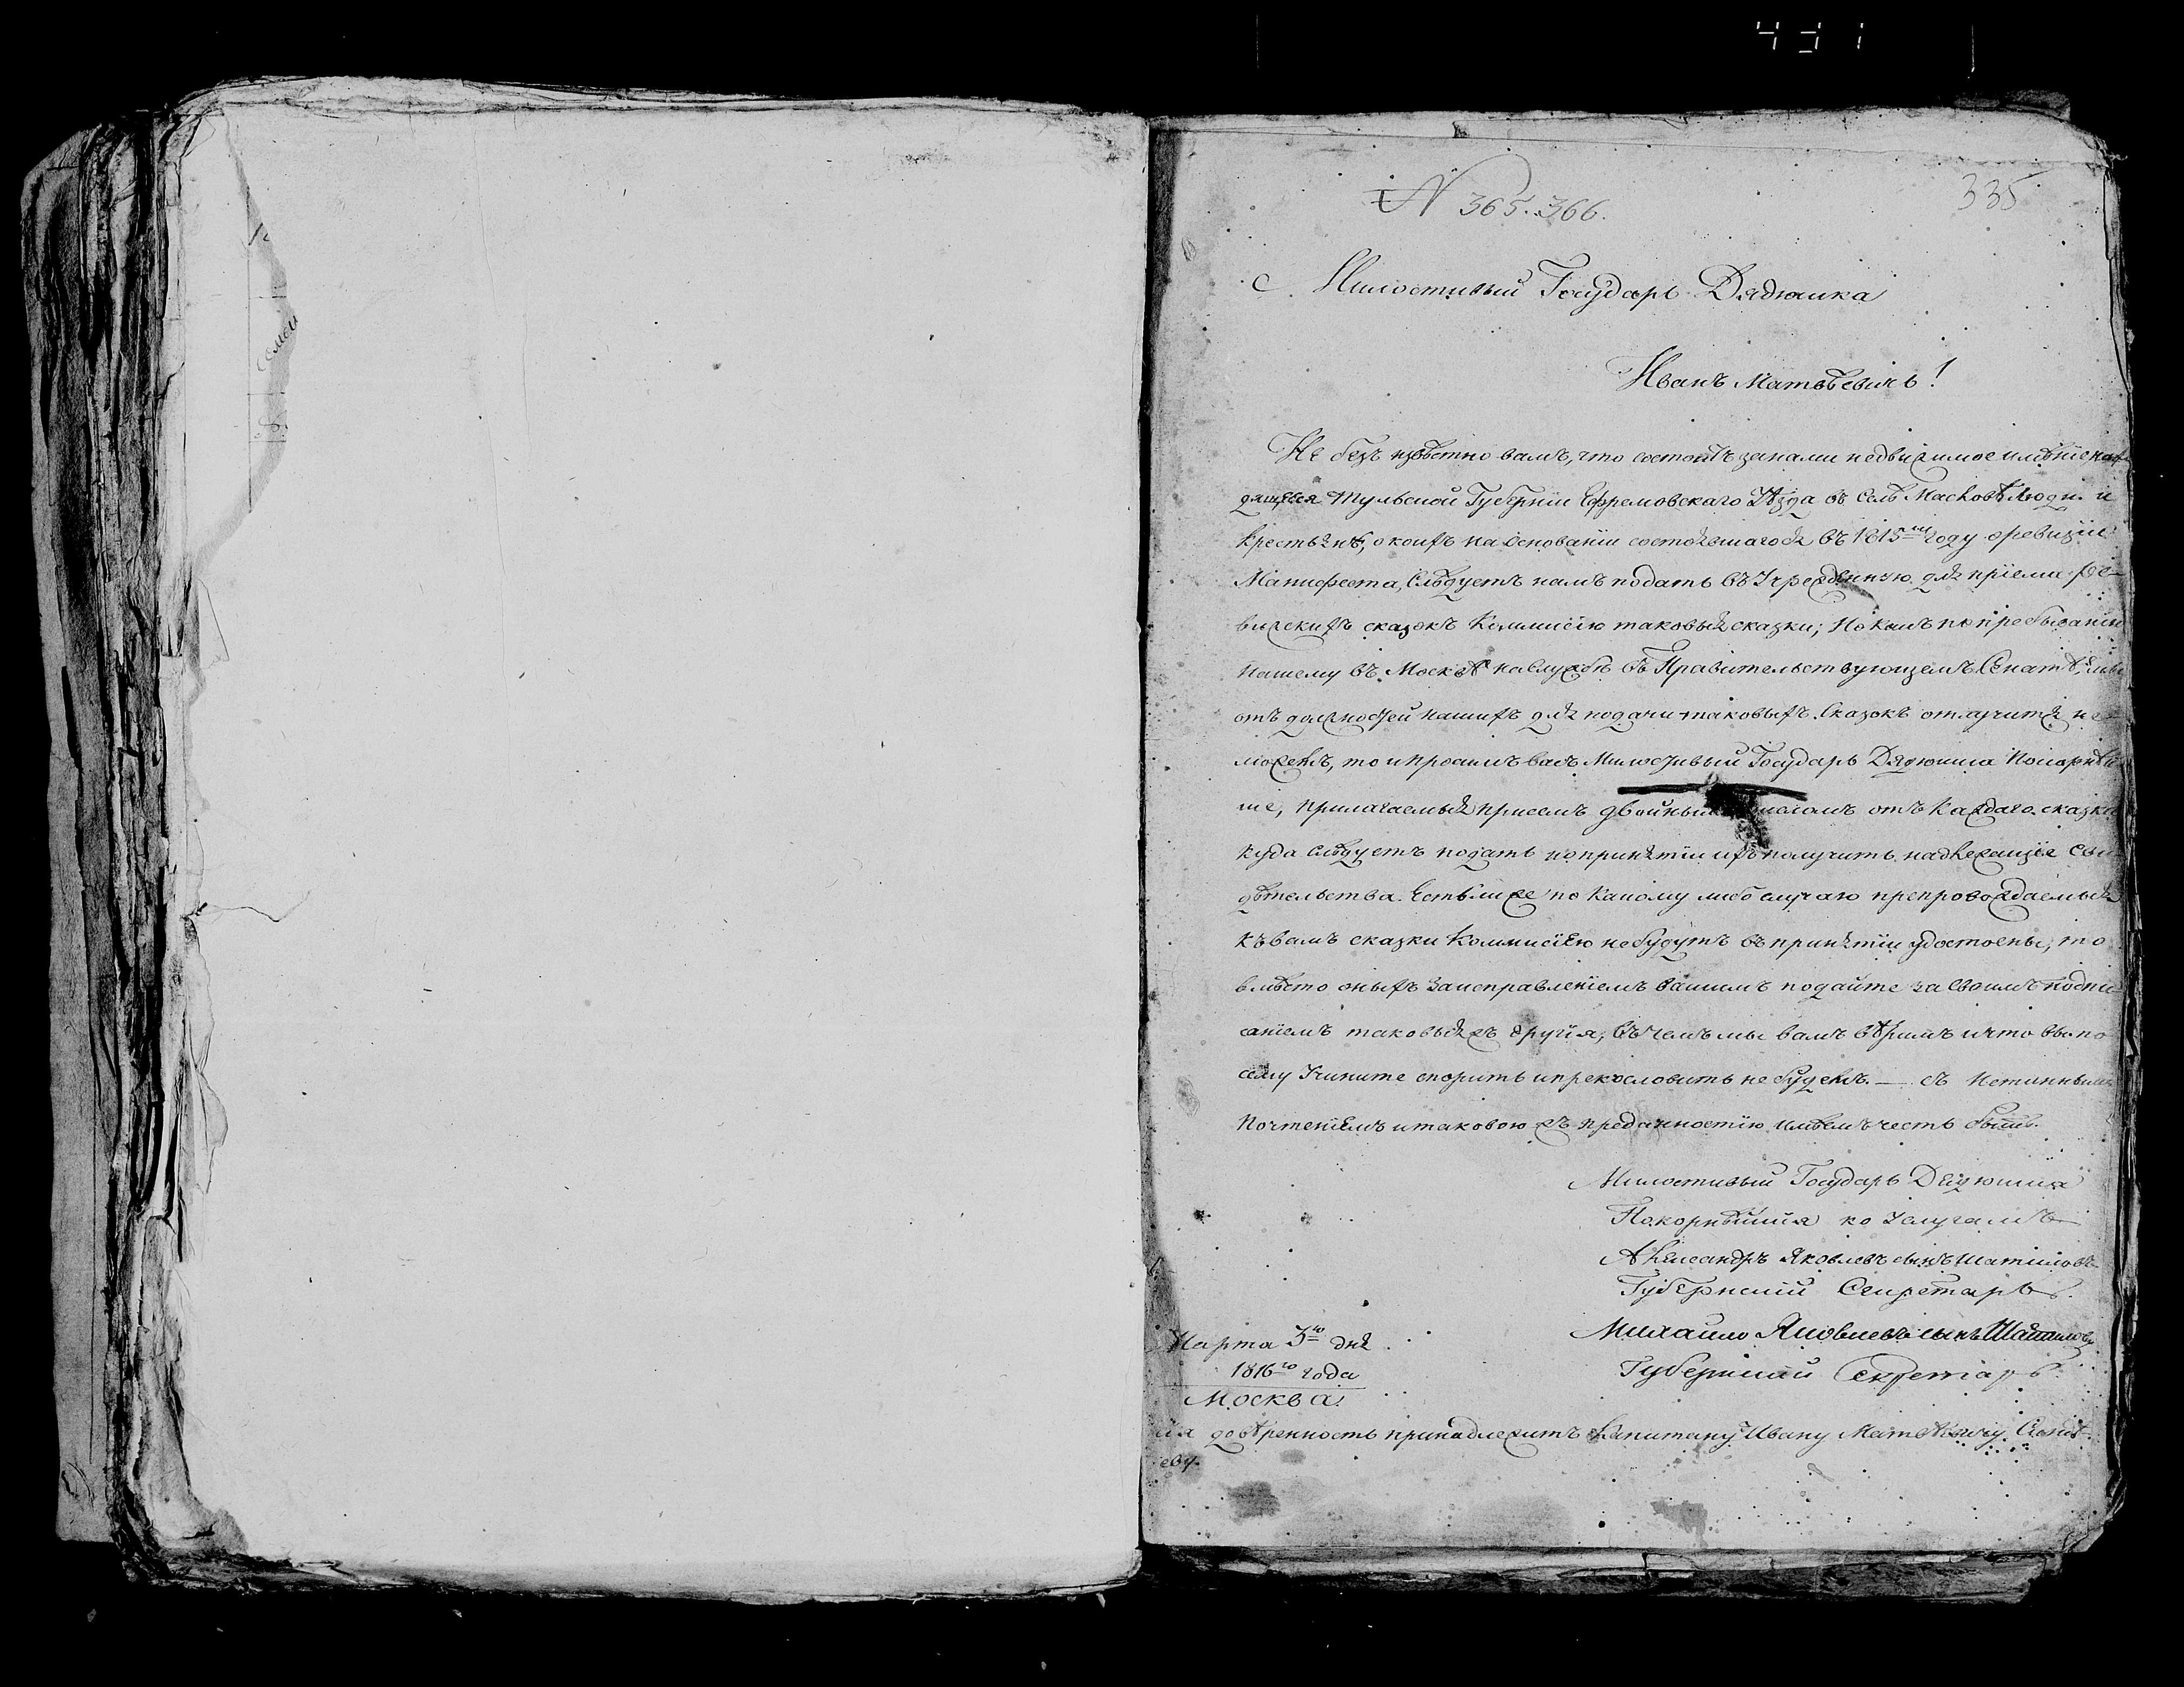 431
N 365. 366.
335
Милостивый Государь Дядюшка
Иванъ Матвѣевичь!
Не безъ извѣстно вамъ, что состоитъ занами недвижимое имѣніе, нахо-
дящееся Тульской Губерніи Ефремовскаго Уѣзда въ Селѣ Люди и
крестьянѣ, о коихъ на основаніи состоявшагося въ 1815мъ году оревизіи
Манифеста, Слѣдуетъ намъ подать въ Учрежденную для пріема ре-
визскихъ сказокъ Коммисію таковыя сказки; Но какъ по пребыванію
нашему въ Москвѣ на Службѣ въ Правительствующемъ Сенатѣ,
отъ должностей нашихъ для подачи таковыхъ Сказокъ отлучится не-
можемъ, то и просимъ васъ Милостивый Государь Дядюшка Покорнѣй-
ше, прилагаемыя присемъ двойнымъ числомъ отъ каждаго сказки
куда слѣдуетъ подать и по принятіи ихъ получить надлежащія Сви-
дѣтельства. Естьли же по какому либо случаю препровождаемыя
къ вамъ сказки Коммисіею небудутъ въ принятіи удостоены, то
вмѣсто оныхъ заисправленіемъ вашимъ подайте за Своимъ Подпи-
саніемъ таковыя жъ другія, въ чемъ мы вамъ вѣримъ и что вы по
сему Учините спорить ипрекословить не будемъ. — съ Истиннымъ
Почтеніемъ итаковою жъ преданностію имѣемъ честь быть.
Милостивый Государь Дядюшка
Покорнѣйшія ко Услугамъ
Александръ Яковлевъ сынъ Шатиловъ
Губернскій Секретарь.
Михайло Яковлевъ сынъ Шатиловъ
Губернскій Секретарь
Марта 3го дня
1816го года
Москва.
довѣренность принадлежитъ Капитану Ивану Матвѣевичу
еву.